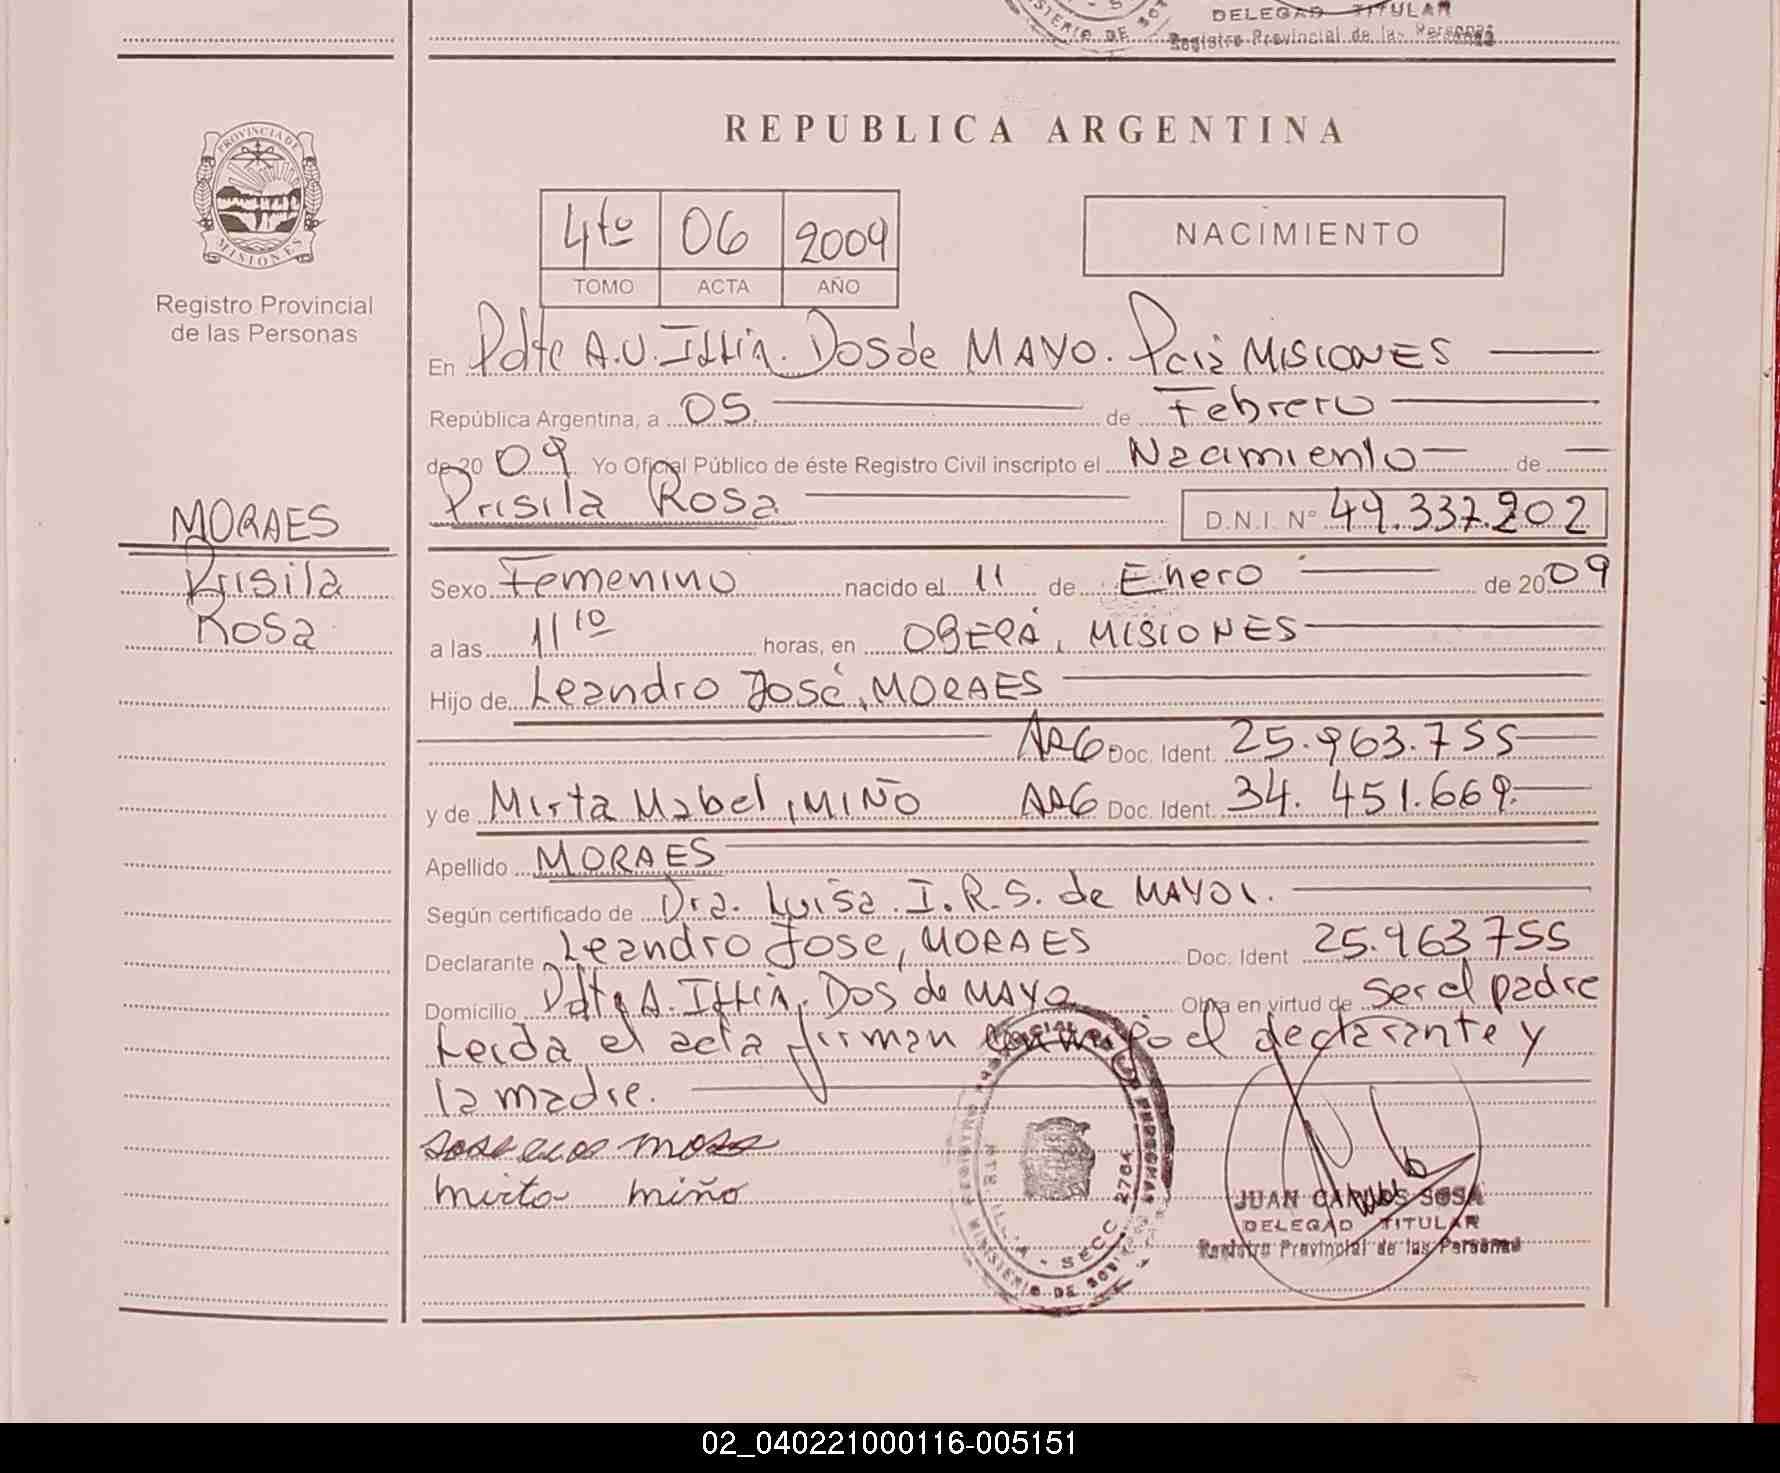 DELEGAD TITULAR
Registro Provincial de las Personas
REPUBLICA ARGENTINA
PROVINCIA DE
MISIONES
Registro Provincial
de las Personas
4to 06 2009
TOMO ACTA AÑO
NACIMIENTO
En Pdte A.U. Illia. Dos de MAYO. Pcia MISIONES
República Argentina, a 05 de Febrero
de 20 09 Yo Oficial Público de éste Registro Civil inscripto el Nacimiento de
Prisila Rosa D.N.I. Nº 49.337.202
MORAES
Prisila
Rosa
Sexo Femenino nacido el 11 de Enero de 2009
a las 11 10 horas, en OBERÁ, MISIONES
Hijo de Leandro José, MORAES
ARG Doc. Ident. 25.963.755
y de Mirta Mabel, MIÑO ARG Doc. Ident. 34.451.669.
Apellido MORAES
Según certificado de Dra. Luisa. I.R.S. de MAYOL.
Declarante Leandro Jose, MORAES Doc. Ident 25.963755
Domicilio Pdte A. Illia. Dos de MAYO Obra en virtud de ser el padre
Leida el acta firman conmigo el declarante y
la madre.
mirta miño
SECC. 2764
MINISTERIO DE
JUAN CARLOS SOSA
DELEGAD TITULAR
Registro Provincial de las Personas
02_040221000116-005151